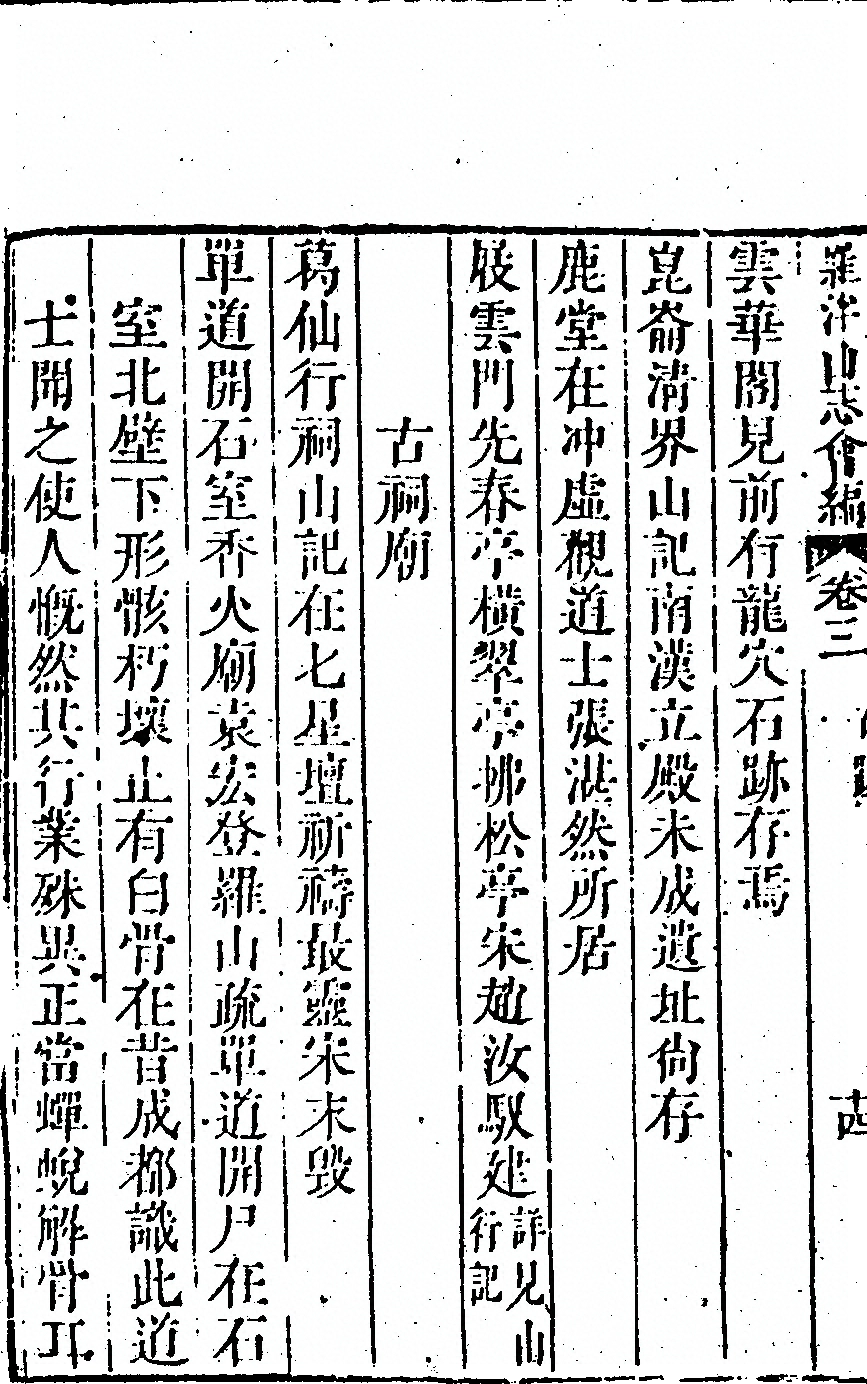 羅浮山志會編 卷三 十四
雲華閣見前有龍穴石跡存焉
崑崙淸界山記南漢立殿未成遺址尙存
鹿堂在冲虛觀道士張湛然所居
屐雲門先春亭橫翠亭拂松亭宋趙汝馭建詳見山行記
古祠廟
葛仙行祠山記在七星壇祈禱最靈宋末毀
單道開石室香火廟袁宏登羅山疏單道開尸在石
室北壁下形骸朽壞止有白骨在昔成都識此道
士開之使人慨然其行業殊異正當蟬蛻解骨耳